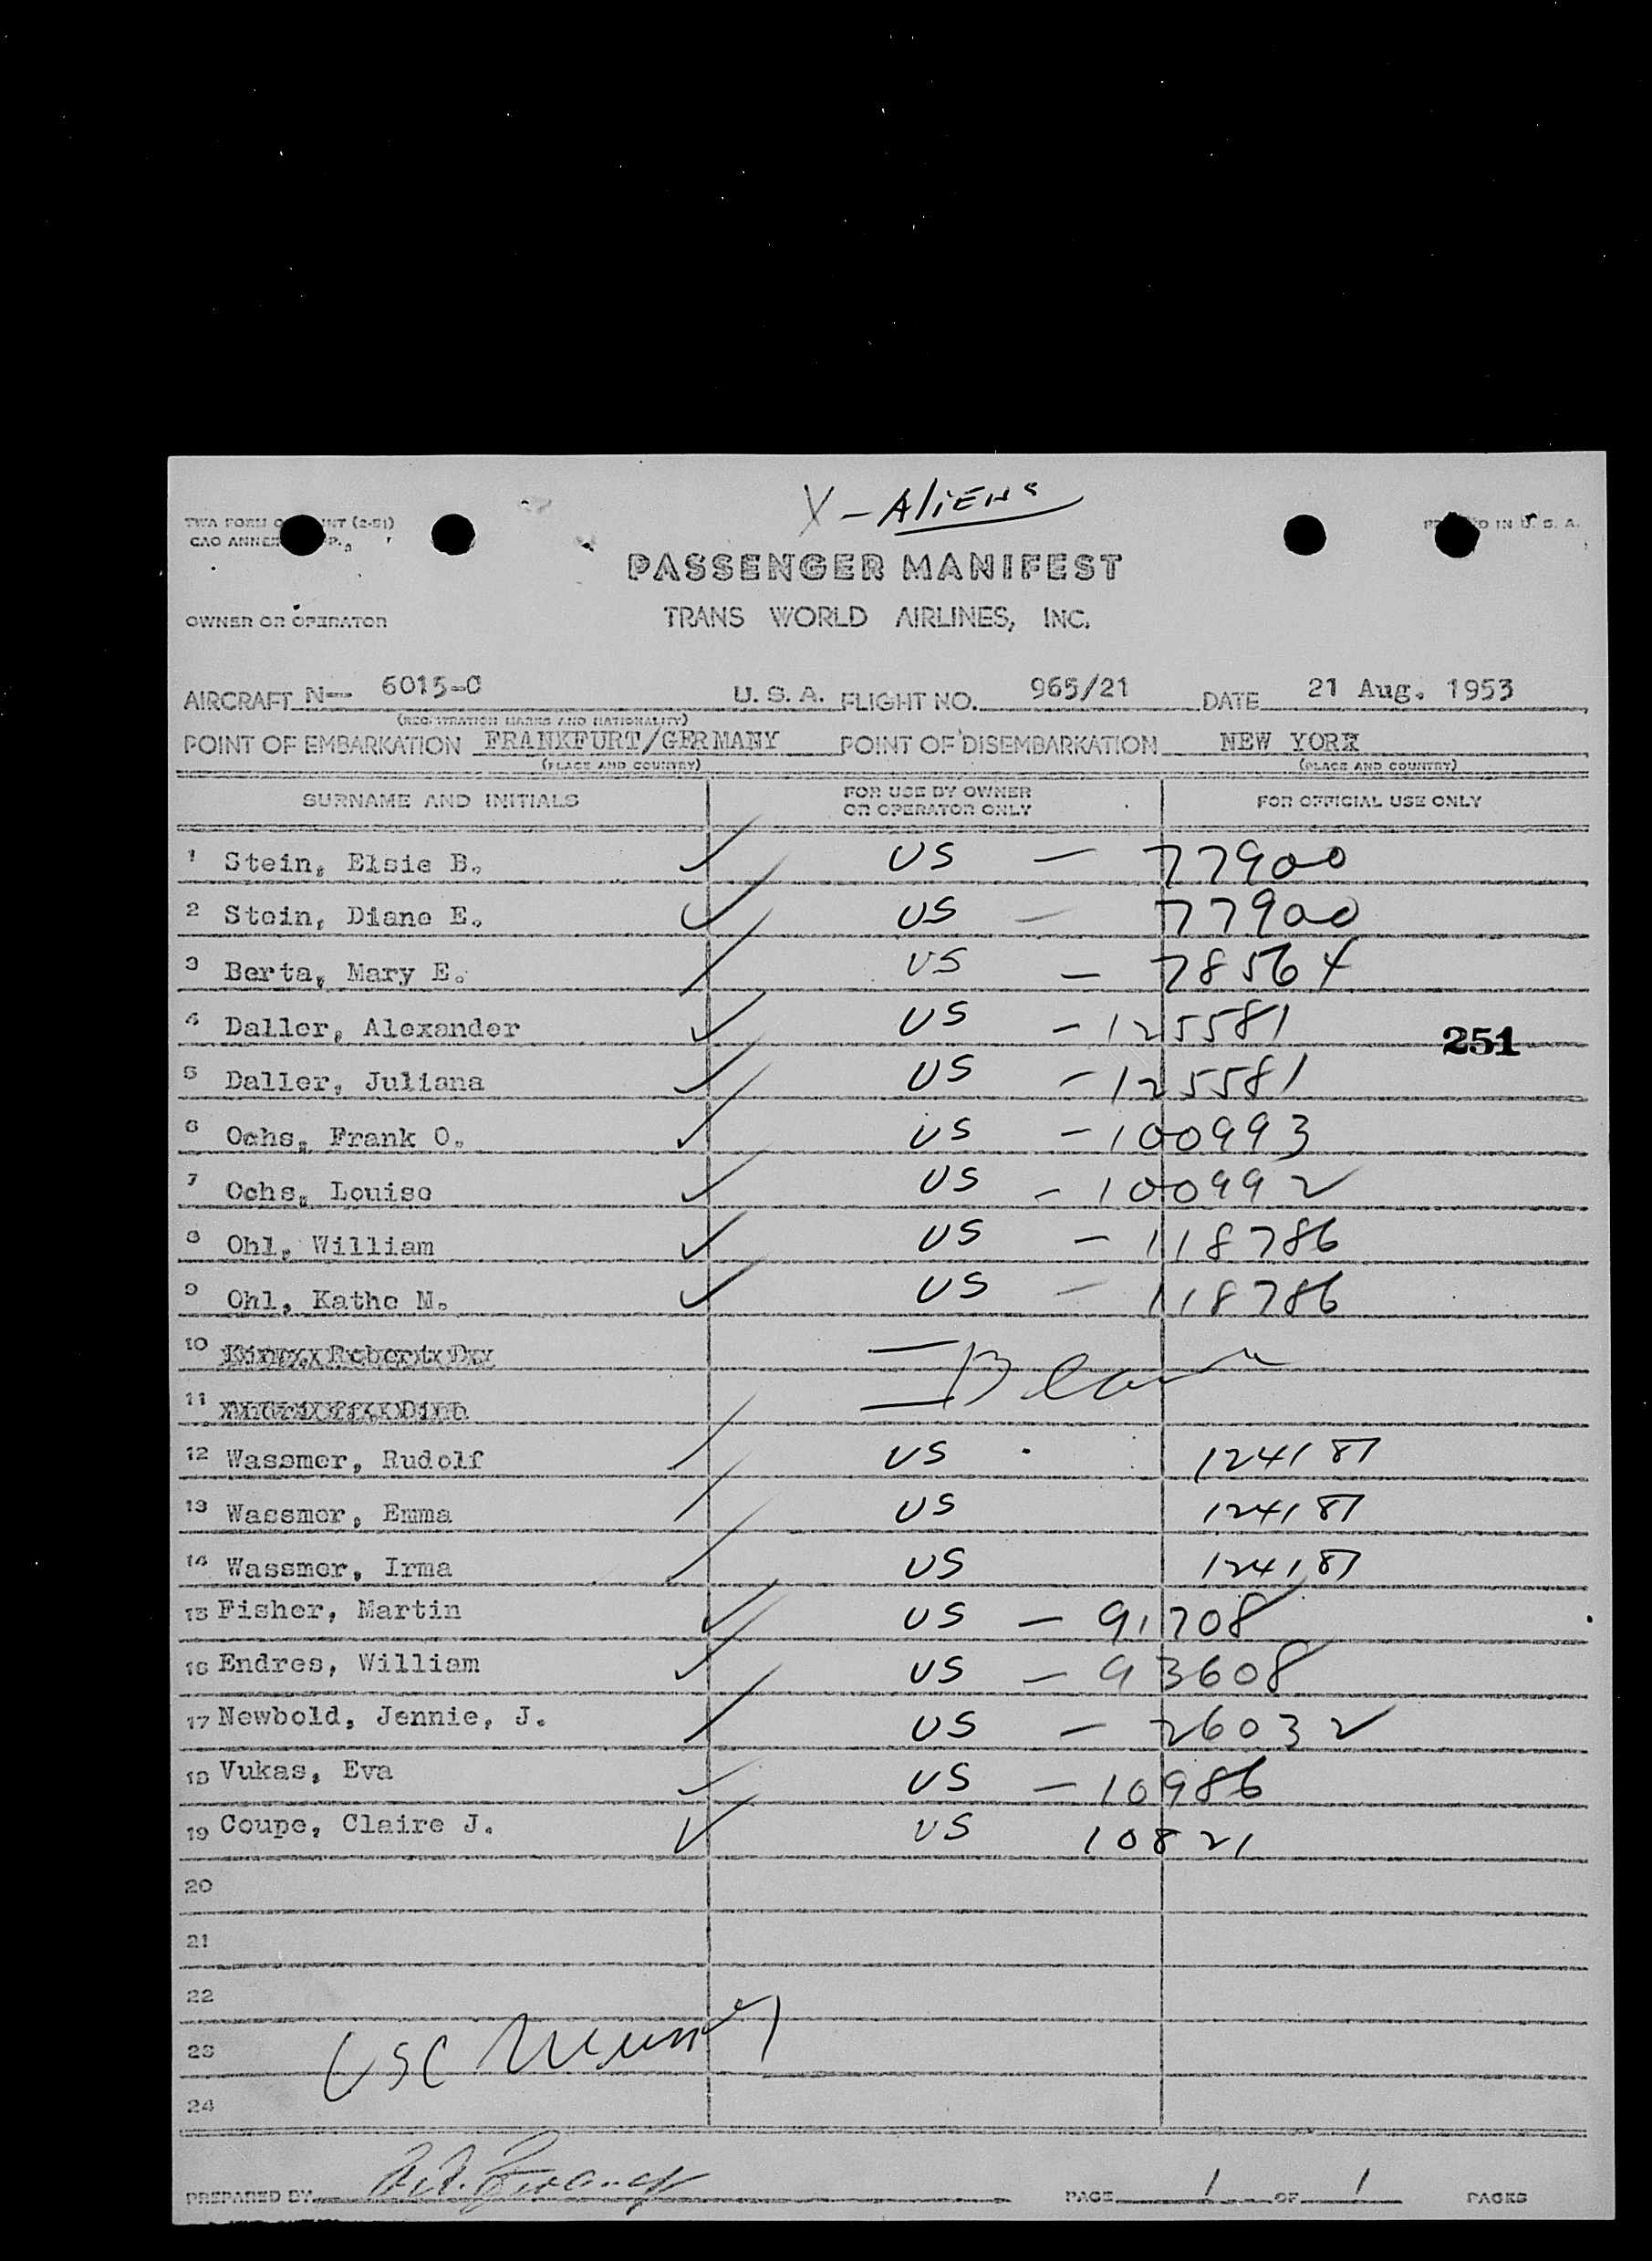 X - Aliens
TWA FORM INT (2-51) PRINTED IN U. S. A.
CAO ANNEX
PASSENGER MANIFEST
OWNER OR OPERATOR TRANS WORLD AIRLINES, INC.
AIRCRAFT N-- 6015-C U. S. A. FLIGHT NO. 965/21 DATE 21 Aug. 1953
(REGISTRATION MARKS AND NATIONALITY)
POINT OF EMBARKATION FRANKFURT/GERMANY POINT OF DISEMBARKATION NEW YORK
(PLACE AND COUNTRY) (PLACE AND COUNTRY)
SURNAME AND INITIALS FOR USE BY OWNER OR OPERATOR ONLY FOR OFFICIAL USE ONLY
1 Stein, Elsie B. ✓ US - 77900
2 Stein, Diane E. ✓ US - 77900
3 Berta, Mary E. US - 78564
4 Daller, Alexander ✓ US - 125581
251
5 Daller, Juliana ✓ US - 125581
6 Ochs, Frank O. ✓ US - 100993
7 Ochs, Louise ✓ US - 100992
8 Ohl, William ✓ US - 118786
9 Ohl, Kathe M. ✓ US - 118786
10
11
12 Wassmer, Rudolf US 124187
13 Wassmer, Emma US 124187
14 Wassmer, Irma US 124187
15 Fisher, Martin ✓ US - 91708
16 Endres, William ✓ US - 93608
17 Newbold, Jennie, J. US - 26032
18 Vukas, Eva ✓ US - 10986
19 Coupe, Claire J. ✓ US 10821
20
21
22
23 USC
24
PREPARED BY PAGE 1 OF 1 PAGES